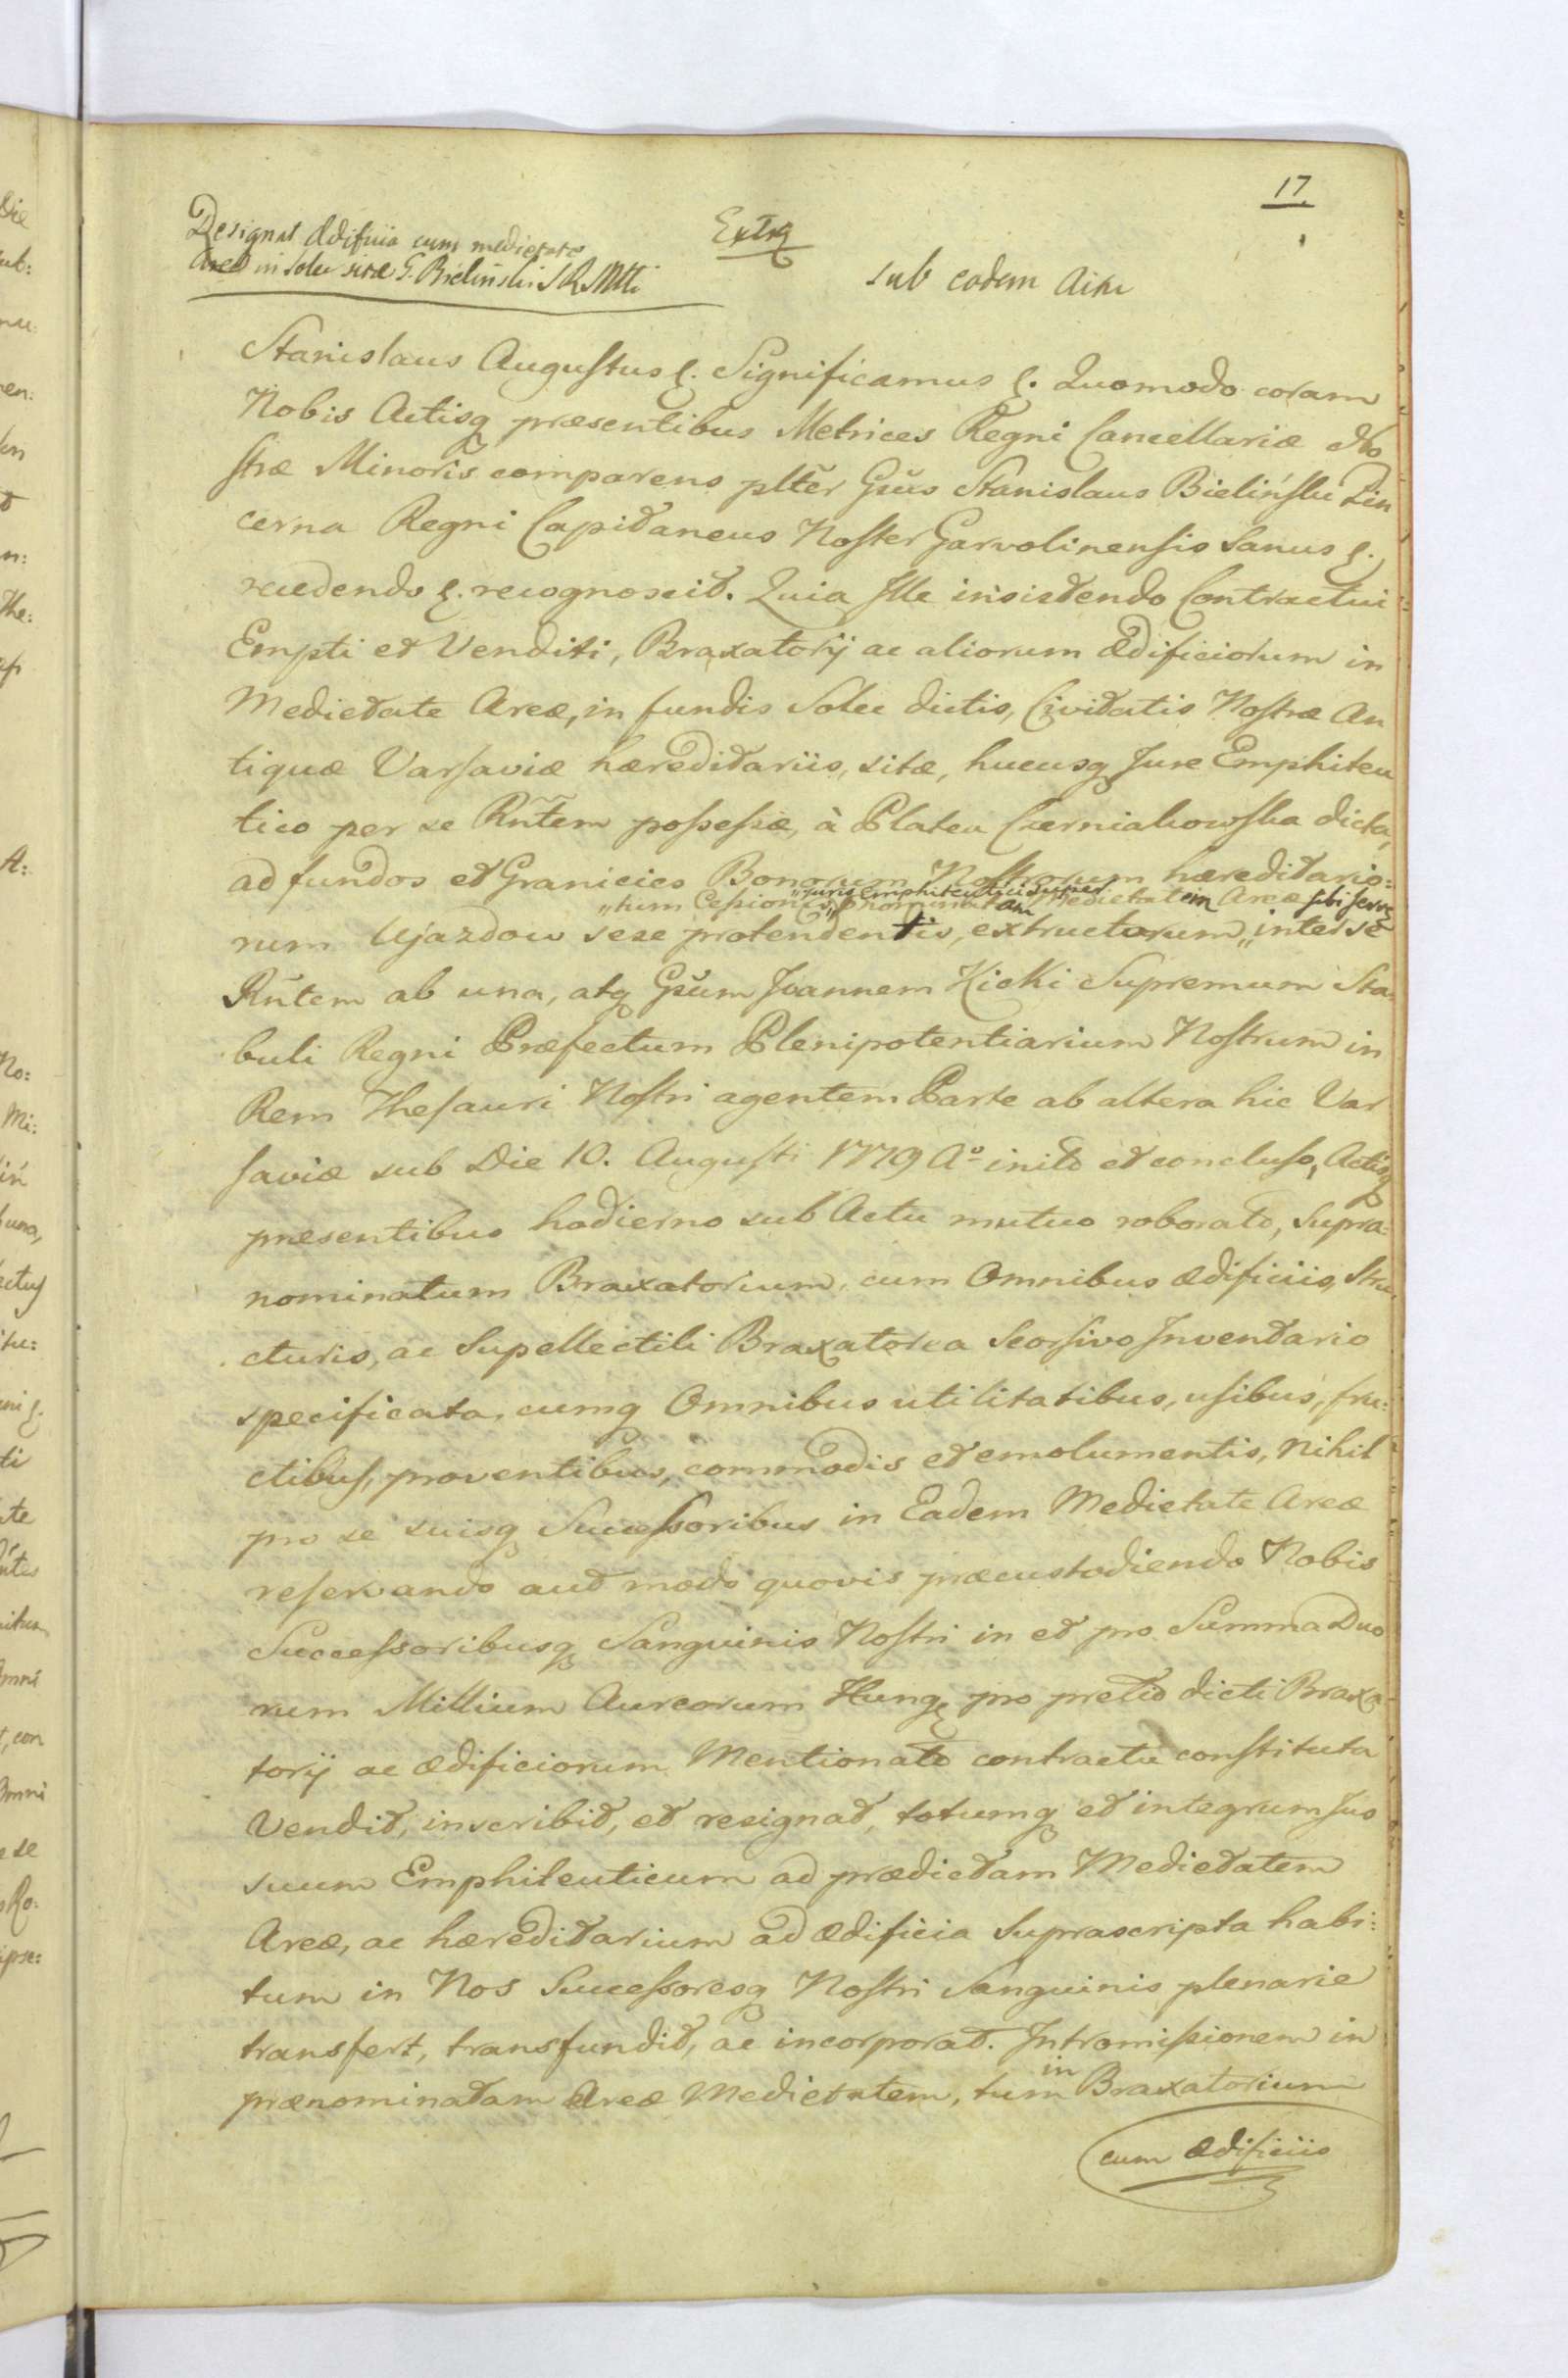 17
Extra
Resignat Ædificia cum medietate
Areæ in Solec sitæ G. Bieliński S R Mtti
sub eodem Actu
Stanislaus Augustus &. Significamus &. Quomodo coram
Nobis Actisq præsentibus Metrices Regni Cancellariæ No
stræ Minoris comparens pltēr Gsūs Stanislaus Bieliński Pin
cerna Regni Capitaneus Noster Garvolinensis Sanus &.
recedendo &. recognoscit. Quia Ille insistendo Contractui
Empti et Venditi, Braxatorij ac aliorum Ædificiorum in
Medietate Areæ, in fundis Solec dictis, Civitatis Nostræ An
tiquæ Varsaviæ hæreditariis, sitæ, hucusq Jure Emphiteu
tico per se Rñtem possessæ, à Platea Czerniakowska dicta,
ad fundos et Granicies Bonorum Nostrorum hæreditario:
"juris emphiteutici super
"tum Cessionis" pnominatam Medietatem Areæ sibi serv
rum Ujazdow sese protendentis, extructorum" inter se
Rñtem ab una, atq Gsūm Joannem Kicki Supremum Sta:
buli Regni Præfectum Plenipotentiarium Nostrum in
Rem Thesauri Nostri agentem Parte ab altera hic Var
saviæ sub Die 10. Augusti 1779 Aº inito et concluso, Actisq
præsentibus hodierno sub Actu mutuo roborato, Supra:
nominatum Braxatorium, cum Omnibus Ædificiis, Stru
cturis, ac Supellectili Braxatorea Seorsivo Inventario
specificata, cumq Omnibus utilitatibus, usibus, fru:
ctibus, proventibus, commodis et emolumentis, Nihil
pro se suisq Successoribus in Eadem Medietate Areæ
reservando aut modo quovis præcustodiendo Nobis
Successoribusq Sanguinis Nostri in et pro Summa Duo
rum Millium Aureorum Hung pro pretio dicti Braxa
torij ac Ædificiorum Mentionato contractu constituta
Vendit, inscribit, et resignat, totumq et integrum Jus
suum Emphiteuticum ad prædictam Medietatem
Areæ, ac hæreditarium ad Ædificia Suprascripta habi:
tum in Nos Successoresq Nostri Sanguinis plenarie
transfert, transfundit, ac incorporat. Intromissionem in
prænominatam Areæ Medietatem, tum in Braxatorium
cum Ædificiis